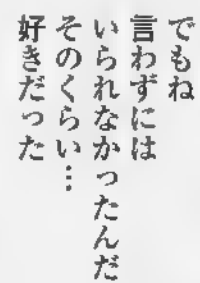 でもね
言わずには
いられなかったんだ
そのくらい…
好きだった